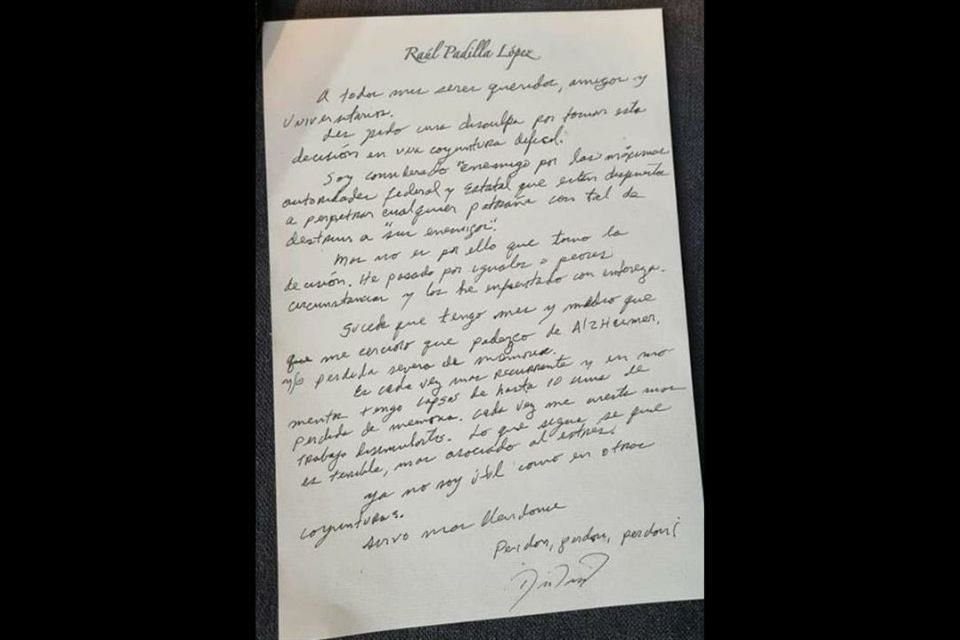 Raúl Padilla López
A todos mis seres queridos, amigos y
Universitarios.
Les pido una disculpa por tomar esta
decisión en una coyuntura difícil.
Soy considerado "enemigo por las máximas
autoridades federal y Estatal que están dispuestas
a perpetrar cualquier patraña con tal de
destruir a "sus enemigos".
Mas no es por ello que tomo la
decisión. He pasado por iguales o peores
circunstancias y las he enfrentado con entereza.
Sucede que tengo mes y medio que
que me cercioro que padezco de Alzheimer,
y/o perdida severa de memoria.
Es cada vez mas recurrente y en mo
mentos tengo lapsos de hasta 10 de
perdida de memoria. Cada vez me cuesta mas
trabajo disimularlos. Lo que sigue se que
es terrible, mas asociado al estrés.
Ya no soy útil como en otras
coyunturas.
Sirvo mas
Perdon, perdon, perdon!